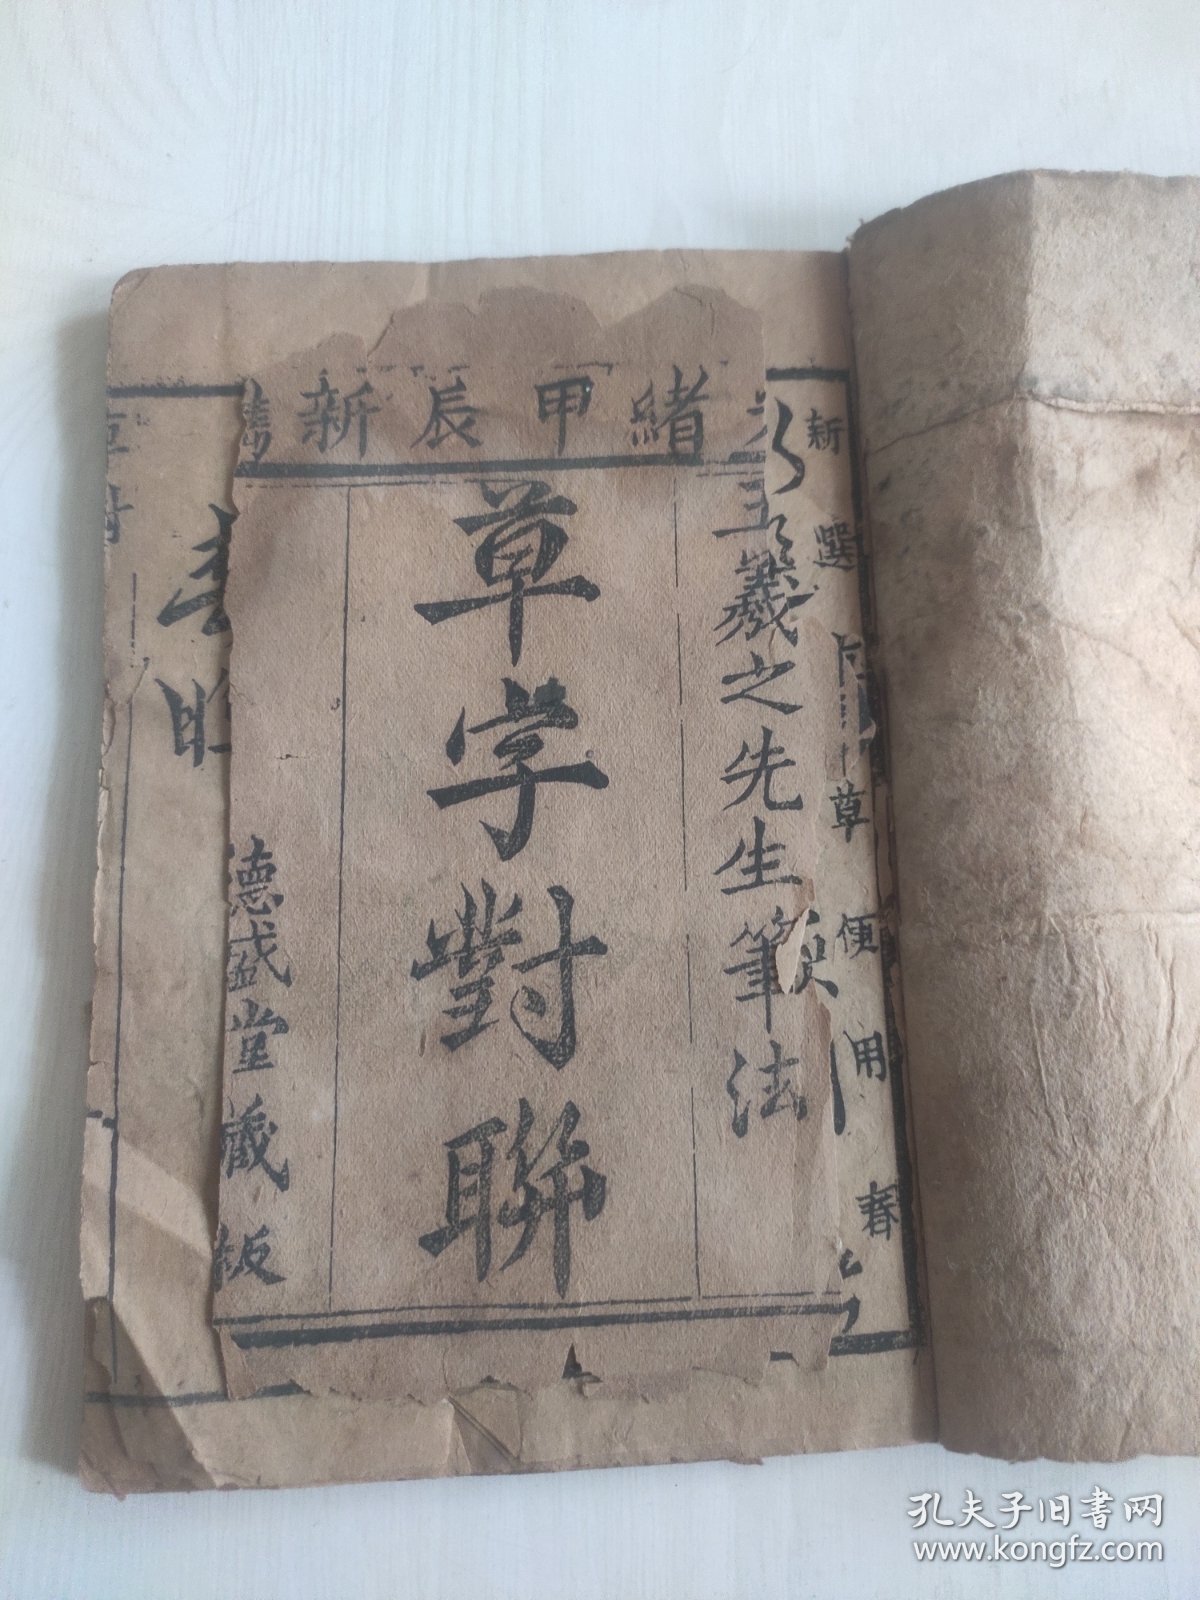 緒甲辰新鐫
王羲之先生筆法
草字對聯
德盛堂藏板
新選
草便用春
孔夫子旧书网
www.kongfz.com